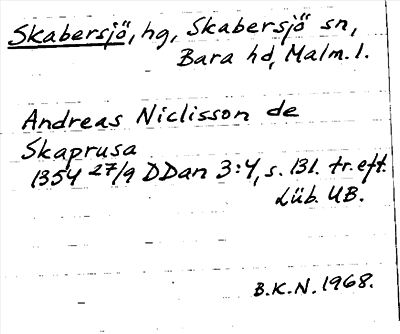 Skabersjö, hg, Skabersjö sn,
Bara hd, Malm. l.
Andreas Niclisson de
Skaprusa
1354 27/9 DDan 3:4, s. 131. tr. eft.
Lüb. UB.
B.K.N. 1968.